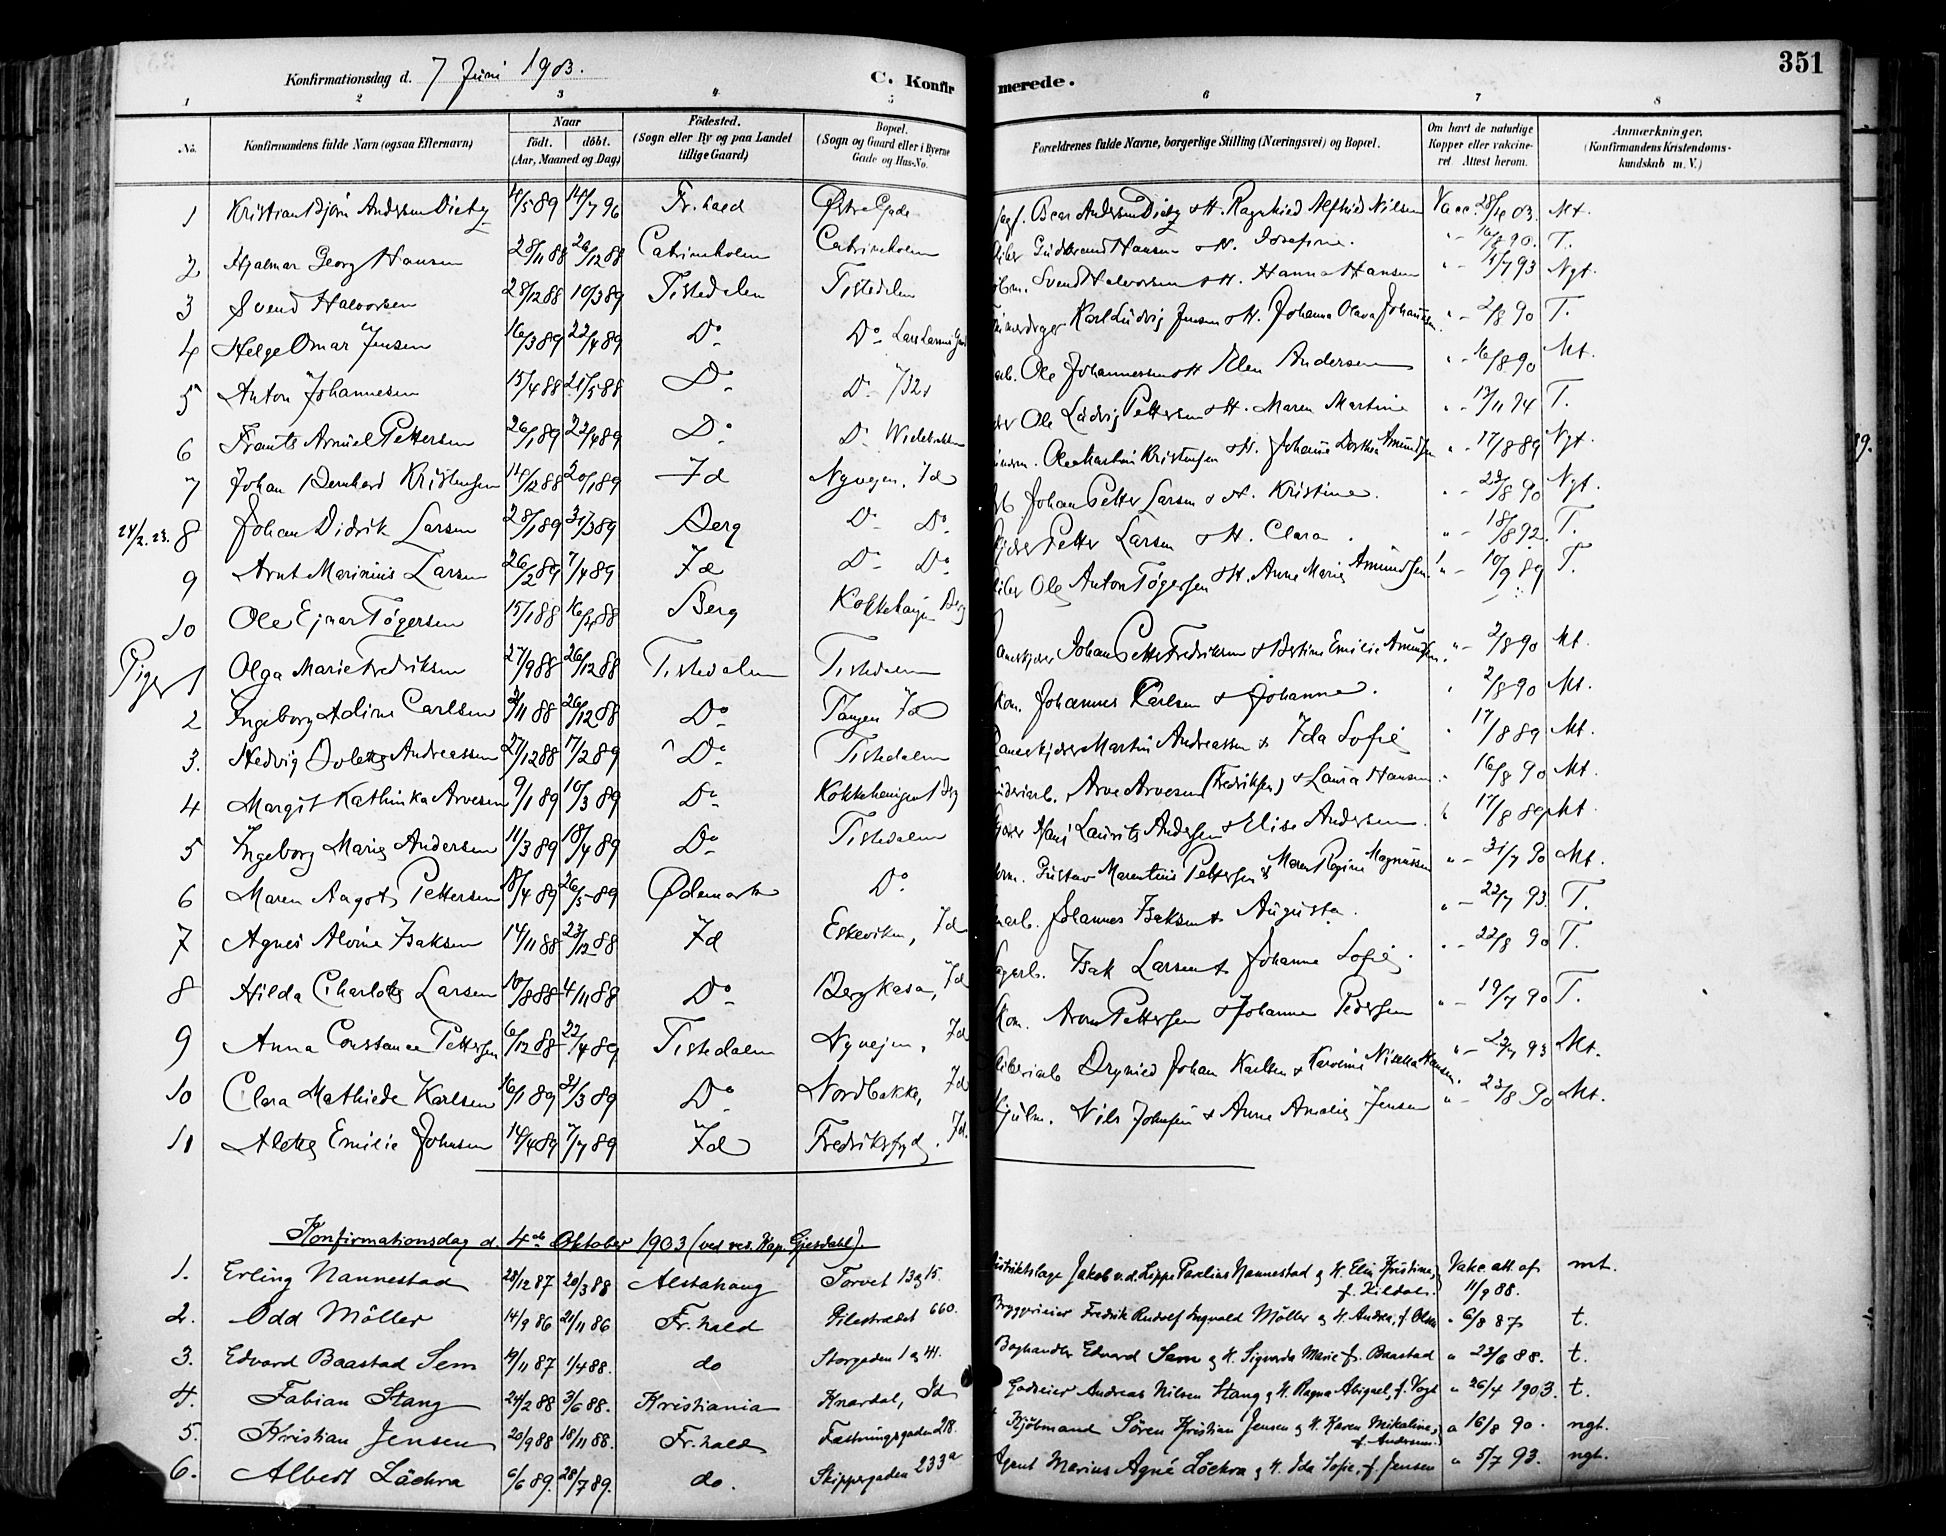 351
Konfirmationsdag d. 7 Juni 1903. C. Konfirmerede.
1 2 3 4 5 6 7 8
No. Konfirmandens fulde Navn (ogsaa Efternavn) Naar født. døbt. (Aar, Maaned og Dag) Fødested. (Sogn eller By og paa Landet tillige Gaard) Bopæl. (Sogn og Gaard eller i Byerne Gade og Hus-No. Forældrenes fulde Navne, borgerlige Stilling (Næringsvei) og Bopæl. Om havt de naturlige Kopper eller vaccineret. Attest herom. Anmærkninger. (Konfirmandens Kristendomskundskab m. V.)
1 Kristian Bjørn Andersen Dieby 4/5 89 14/7 96 Fr.hald Østre Gade Andersen Dieby & H. Ragnhild Alfhild Nilsen Vacc. 28/4 03. Mt.
2 Hjalmar Georg Hansen 28/11 88 26/12 88 Catrineholm Catrineholm Gudbrand Hansen & H. Josefine. " - 16/8 90. T.
3 Svend Halvorsen 28/12 88 10/3 89 Tistedalen Tistedalen Svend Halvorsen & H. Hanna Hansen " - 4/7 93 Ngt.
4 Helge Omar Jensen 16/3 89 22/4 89 Do Do Karl Ludvig Jensen & H. Johanna Olava Johansen " - 2/8 90 T.
5 Anton Johannesen 15/4 88 21/5 88 Do Do Ole Johannessen & H. Elen Andersen " - 16/8 90 Mt.
6 Frants Arnuel Pettersen 26/1 89 22/4 89 Do Do Ole Ludvig Pettersen & H. Maren Martine " - 13/11 94 T.
7 Johan Bernhard Kristensen 11/12 88 20/1 89 Id Nyvejen, Id Ole Martin Kristensen & H. Johanne Dorthea Amundsen " - 17/8 89 Ngt.
24/2. 23. 8 Johan Didrik Larsen 28/1 89 31/3 89 Berg Do Do Johan Petter Larsen & H. Kristine. " - 23/8 90 Ngt.
9 Arnt Marinius Larsen 26/2 89 7/4 89 Id Do Do Petter Larsen & H. Clara. " - 18/8 92. T.
10 Ole Ejnar Tøgersen 15/1 88 16/ 88 Berg Kokkehaugen Berg Ole Anton Tøgersen & H. Anne Marie Amundsen. " - 10/9 89 T.
Piger 1 Olga Marie Fredriksen 27/9 88 26/12 88 Tistedalen Tistedalen Johan Petter Fredriksen & Bertine Emilie Amundsen. " - 2/8 90 Mt.
2 Ingeborg Adine Carlsen 3/11 88 26/12 88 Do Tangen Id Johannes Karlsen & Johanne. " 2/8 90 Mt.
3. Hedvig Bolette Andreassen 27/12 88 17/2 89 Do Tistedalen Martin Andreassen & Ida Sofie " 17/8 89 Mt.
4 Margit Kathinka Arvesen 9/1 89 10/3 89 Do Kokkehaugen Brg Arve Arvesen (Fredriksen) & Laura Hansen " 16/8 90 Mt.
5 Ingeborg Marie Andersen 11/3 89 18/4 89 Do Tistedalen Hans Laurits Andersen & Elise Andersen. " 17/8 89 Mt
6 Maren Aagot Pettersen 18/4 89 26/5 89 Ødemark Do Gustav Marentius Pettersen & Maren Regine Magnussen " - 31/7 90 Mt.
7 Agnes Alvine Isaksen 14/11 88 23/12 88 Id Eskeviken, Id Johannes Isaksen & Augusta. " - 22/7 93. T.
8 Hilda Charlotte Larsen 10/8 88 4/11 88 Do Bergkasa, Id Isak Larsen & Johanne Sofie. " - 22/8 90 T.
9 Anna Constance Pettersen 6/12 88 22/4 89 Tistedalen Nyvejen, Id Aron Pettersen & Johanne Pedersen " - 19/7 90 T.
10 Clara Mathilde Karlsen 16/1 89 31/3 89 Do Nordbakke, Id Johan Karlsen & Karoline Hansen. " - 22/7 93 Mt.
11 Alette Emilie Johnsen 14/4 89 7/7 89 Id Fredriksfryd. Id. Nils Johnsen & Anne Amalie Jensen " - 23/8 90 Mt.
Konfirmationsdag d. 4de Oktober 1903 (ved res. Kap. Gjesdahl).
1. Erling Nannestad 28/12 87 20/3 88 Alstahaug Torvet 13 og 15. Distriktslæge Jakob v. d. Lippe Paulius Nannestad og H. Elin Kristine, f. Kildal. Vakc. att. af 11/9 88. mt.
2. Odd Möller 14/9 86 21/11 86 Fr.hald Pilestrædet 660. Bryggerieier Fredrik Rudolf Ingvald Möller og H. Andrea, f. Olsen " 6/8 87 t.
3. Edvard Baastad Sem 19/11 87 1/4 88. do Storgaden 1 og 41. Boghandler Edvard Sem og H. Sigvarda Marie f. Baastad " 23/6 88. t.
4. Fabian Stang 24/2 88 3/6 88. Kristiania Knardal, Id Godseier Andreas Nilsen Stang og H. Ragna Abigael, f. Vogt " 26/4 1903. t.
5. Kristian Jensen 20/9 88 18/11 88. Fr.hald Fæstningsgaden 218. Kjöbmand Sören Kristian Jensen og H. Karen Mikaline, f. Andersen. " 16/8 90. ngt.
6. Albert Löchra 6/6 89. 28/7 89. do. Skippergaden 233a Agent Marius Agné Löchra og H. Ida Sofie, f. Jensen " 5/7 93. ngt.